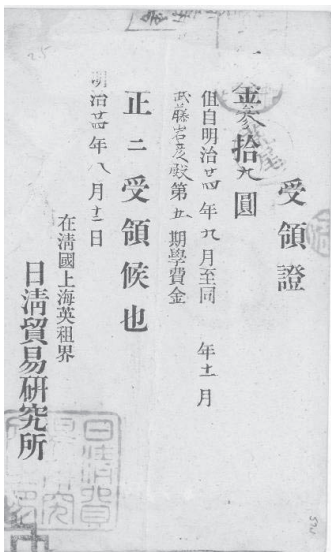 受領證
一
金參拾九圓
但自明治廿四年九月至同 年十一月
武藤岩彦 第五期學費金
正ニ受領候也
明治廿四年八月十二日
在淸國上海英租界
日淸貿易硏究所